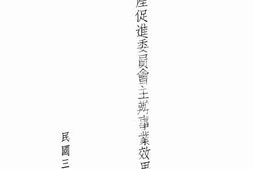 產促進委員會主辦事業效果
民國三